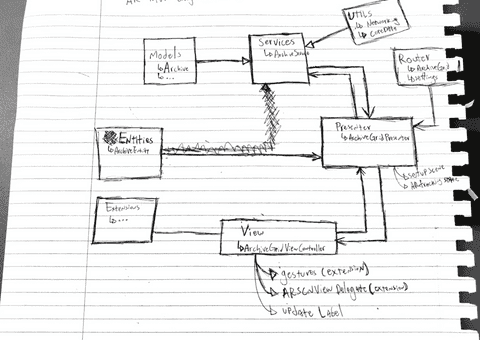 UTILS
↳ Networking
↳ CoreData
Models
↳ Archive
↳ ...
Services
↳ ArchiveService
Router
↳ ArchiveGrid
↳ settings
Entities
↳ ArchiveEntity
Presenter
↳ ArchiveGridPresenter
↳ setupScene
Extensions
↳ ...
View
↳ ArchiveGridViewController
gestures (extension)
ARSCNView Delegate (extension)
update Label